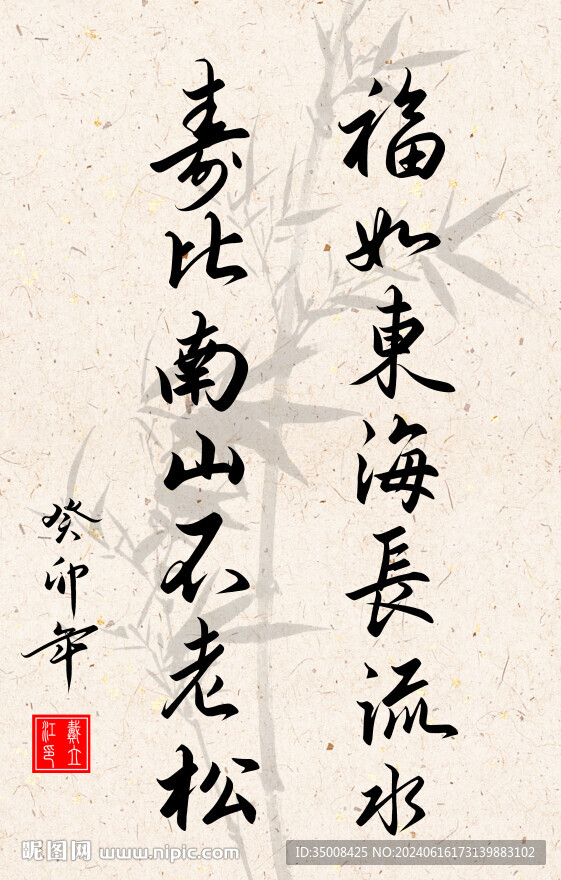 福如東海長流水
壽比南山不老松
癸卯年
戴立江印
昵图网 www.nipic.com
ID:35008425 NO:20240616173139883102